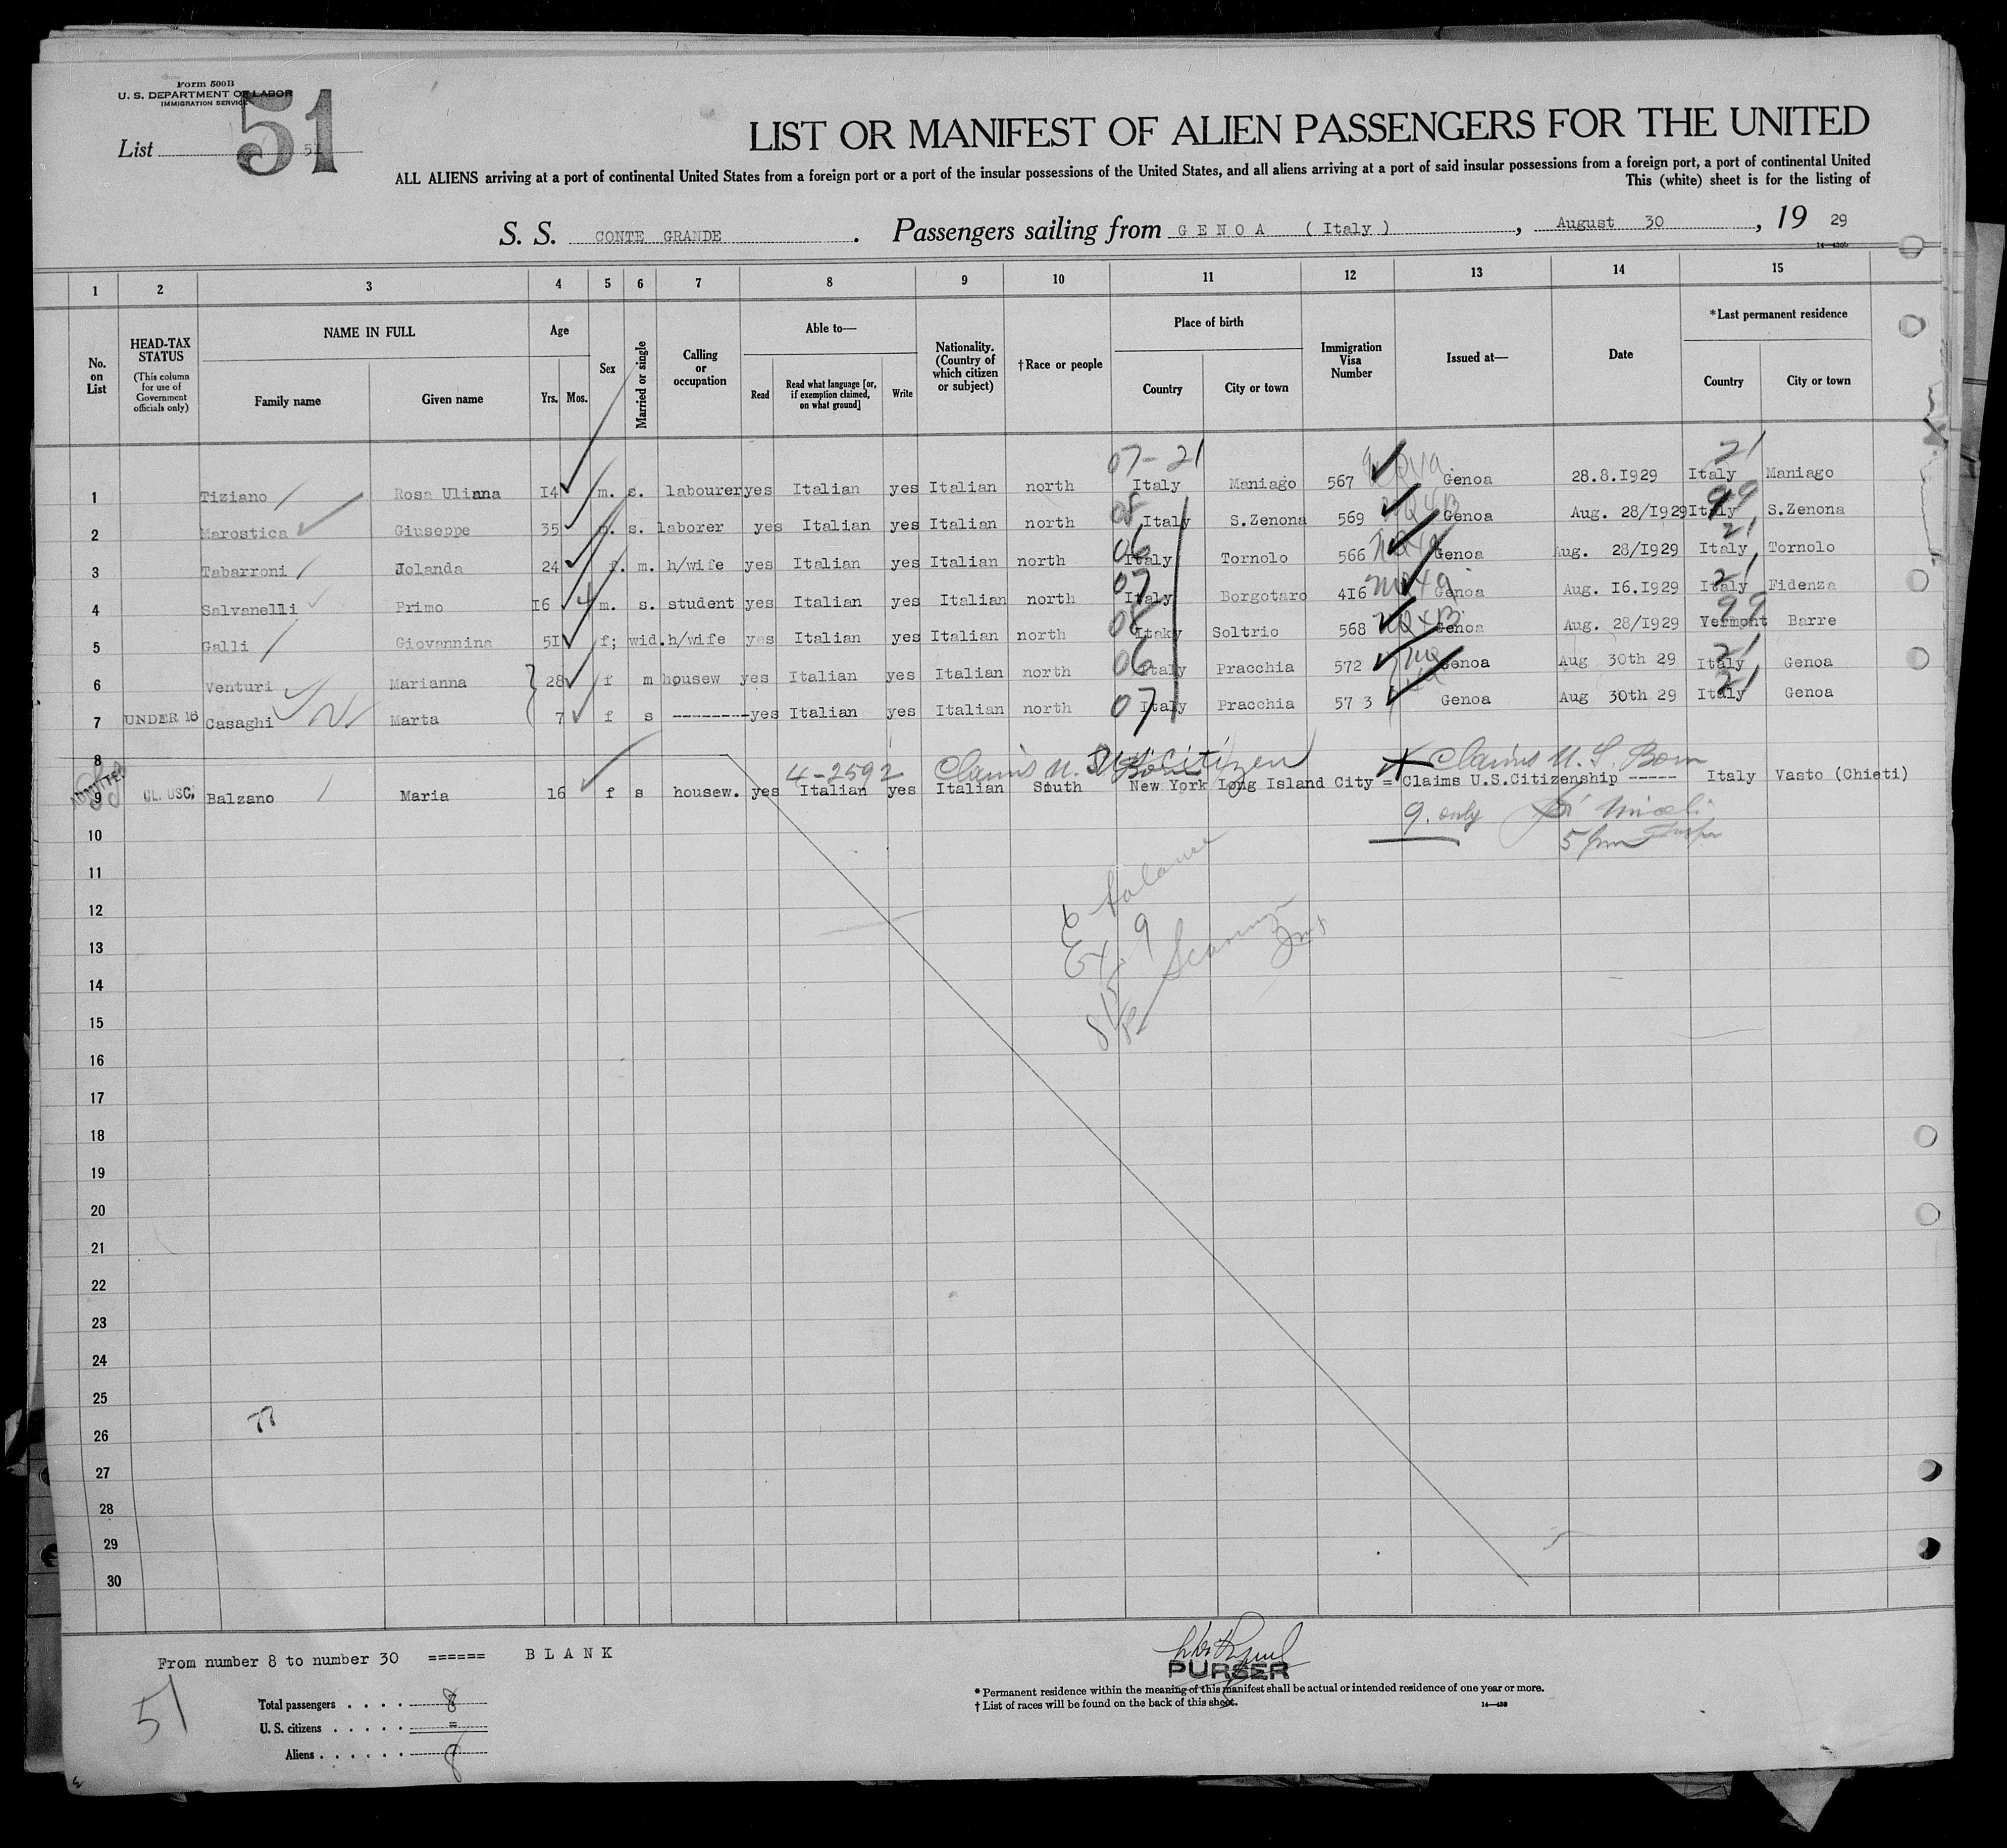 Form 500B
U. S. DEPARTMENT OF LABOR
IMMIGRATION SERVICE
51
List 51
LIST OR MANIFEST OF ALIEN PASSENGERS FOR THE UNITED
ALL ALIENS arriving at a port of continental United States from a foreign port or a port of the insular possessions of the United States, and all aliens arriving at a port of said insular possessions from a foreign port, a port of continental United
This (white) sheet is for the listing of
S. S. CONTE GRANDE. Passengers sailing from GENOA (Italy), August 30, 19 29
14—430b
1 2 3 4 5 6 7 8 9 10 11 12 13 14 15
No. on List
HEAD-TAX STATUS (This column for use of Government officials only)
NAME IN FULL
Family name Given name
Age
Yrs. Mos.
Sex
Married or single
Calling or occupation
Able to—
Read Read what language [or, if exemption claimed, on what ground] Write
Nationality. (Country of which citizen or subject)
†Race or people
Place of birth
Country City or town
Immigration Visa Number
Issued at—
Date
*Last permanent residence
Country City or town
07-21 21
1 Tiziano Rosa Uliana 14 m. s. labourer yes Italian yes Italian north Italy Maniago 567 Genoa 28.8.1929 Italy Maniago
08 99
2 Marostica Giuseppe 35 m. s. laborer yes Italian yes Italian north Italy S.Zenona 569 Genoa Aug. 28/1929 Italy S.Zenona
06 21
3 Tabarroni Jolanda 24 f. m. h/wife yes Italian yes Italian north Italy Tornolo 566 Genoa Aug. 28/1929 Italy Tornolo
07 21
4 Salvanelli Primo 16 4 m. s. student yes Italian yes Italian north Italy Borgotaro 416 Genoa Aug. 16.1929 Italy Fidenza
08 99
5 Galli Giovannina 51 f; wid. h/wife yes Italian yes Italian north Itaky Soltrio 568 Genoa Aug. 28/1929 Vermont Barre
06 21
6 Venturi Marianna 28 f m housew yes Italian yes Italian north Italy Pracchia 572 Genoa Aug 30th 29 Italy Genoa
07 21
7 UNDER 16 Casaghi Marta 7 f s -------- yes Italian yes Italian north Italy Pracchia 57 3 Genoa Aug 30th 29 Italy Genoa
8
4-2592 Claims U.S. Citizen Claims U.S. Born
ADMITTED
9 CL. USC; Balzano Maria 16 f s housew. yes Italian yes Italian South New York Long Island City = Claims U.S.Citizenship ----- Italy Vasto (Chieti)
9. only
10
5 pm
11
12
13
14
15
16
17
18
19
20
21
22
23
24
25
77
26
27
28
29
30
From number 8 to number 30 ====== BLANK
PURSER
51
Total passengers . . . . 8
U. S. citizens . . . . . =
Aliens . . . . . . 8
* Permanent residence within the meaning of this manifest shall be actual or intended residence of one year or more.
† List of races will be found on the back of this sheet.
14—430